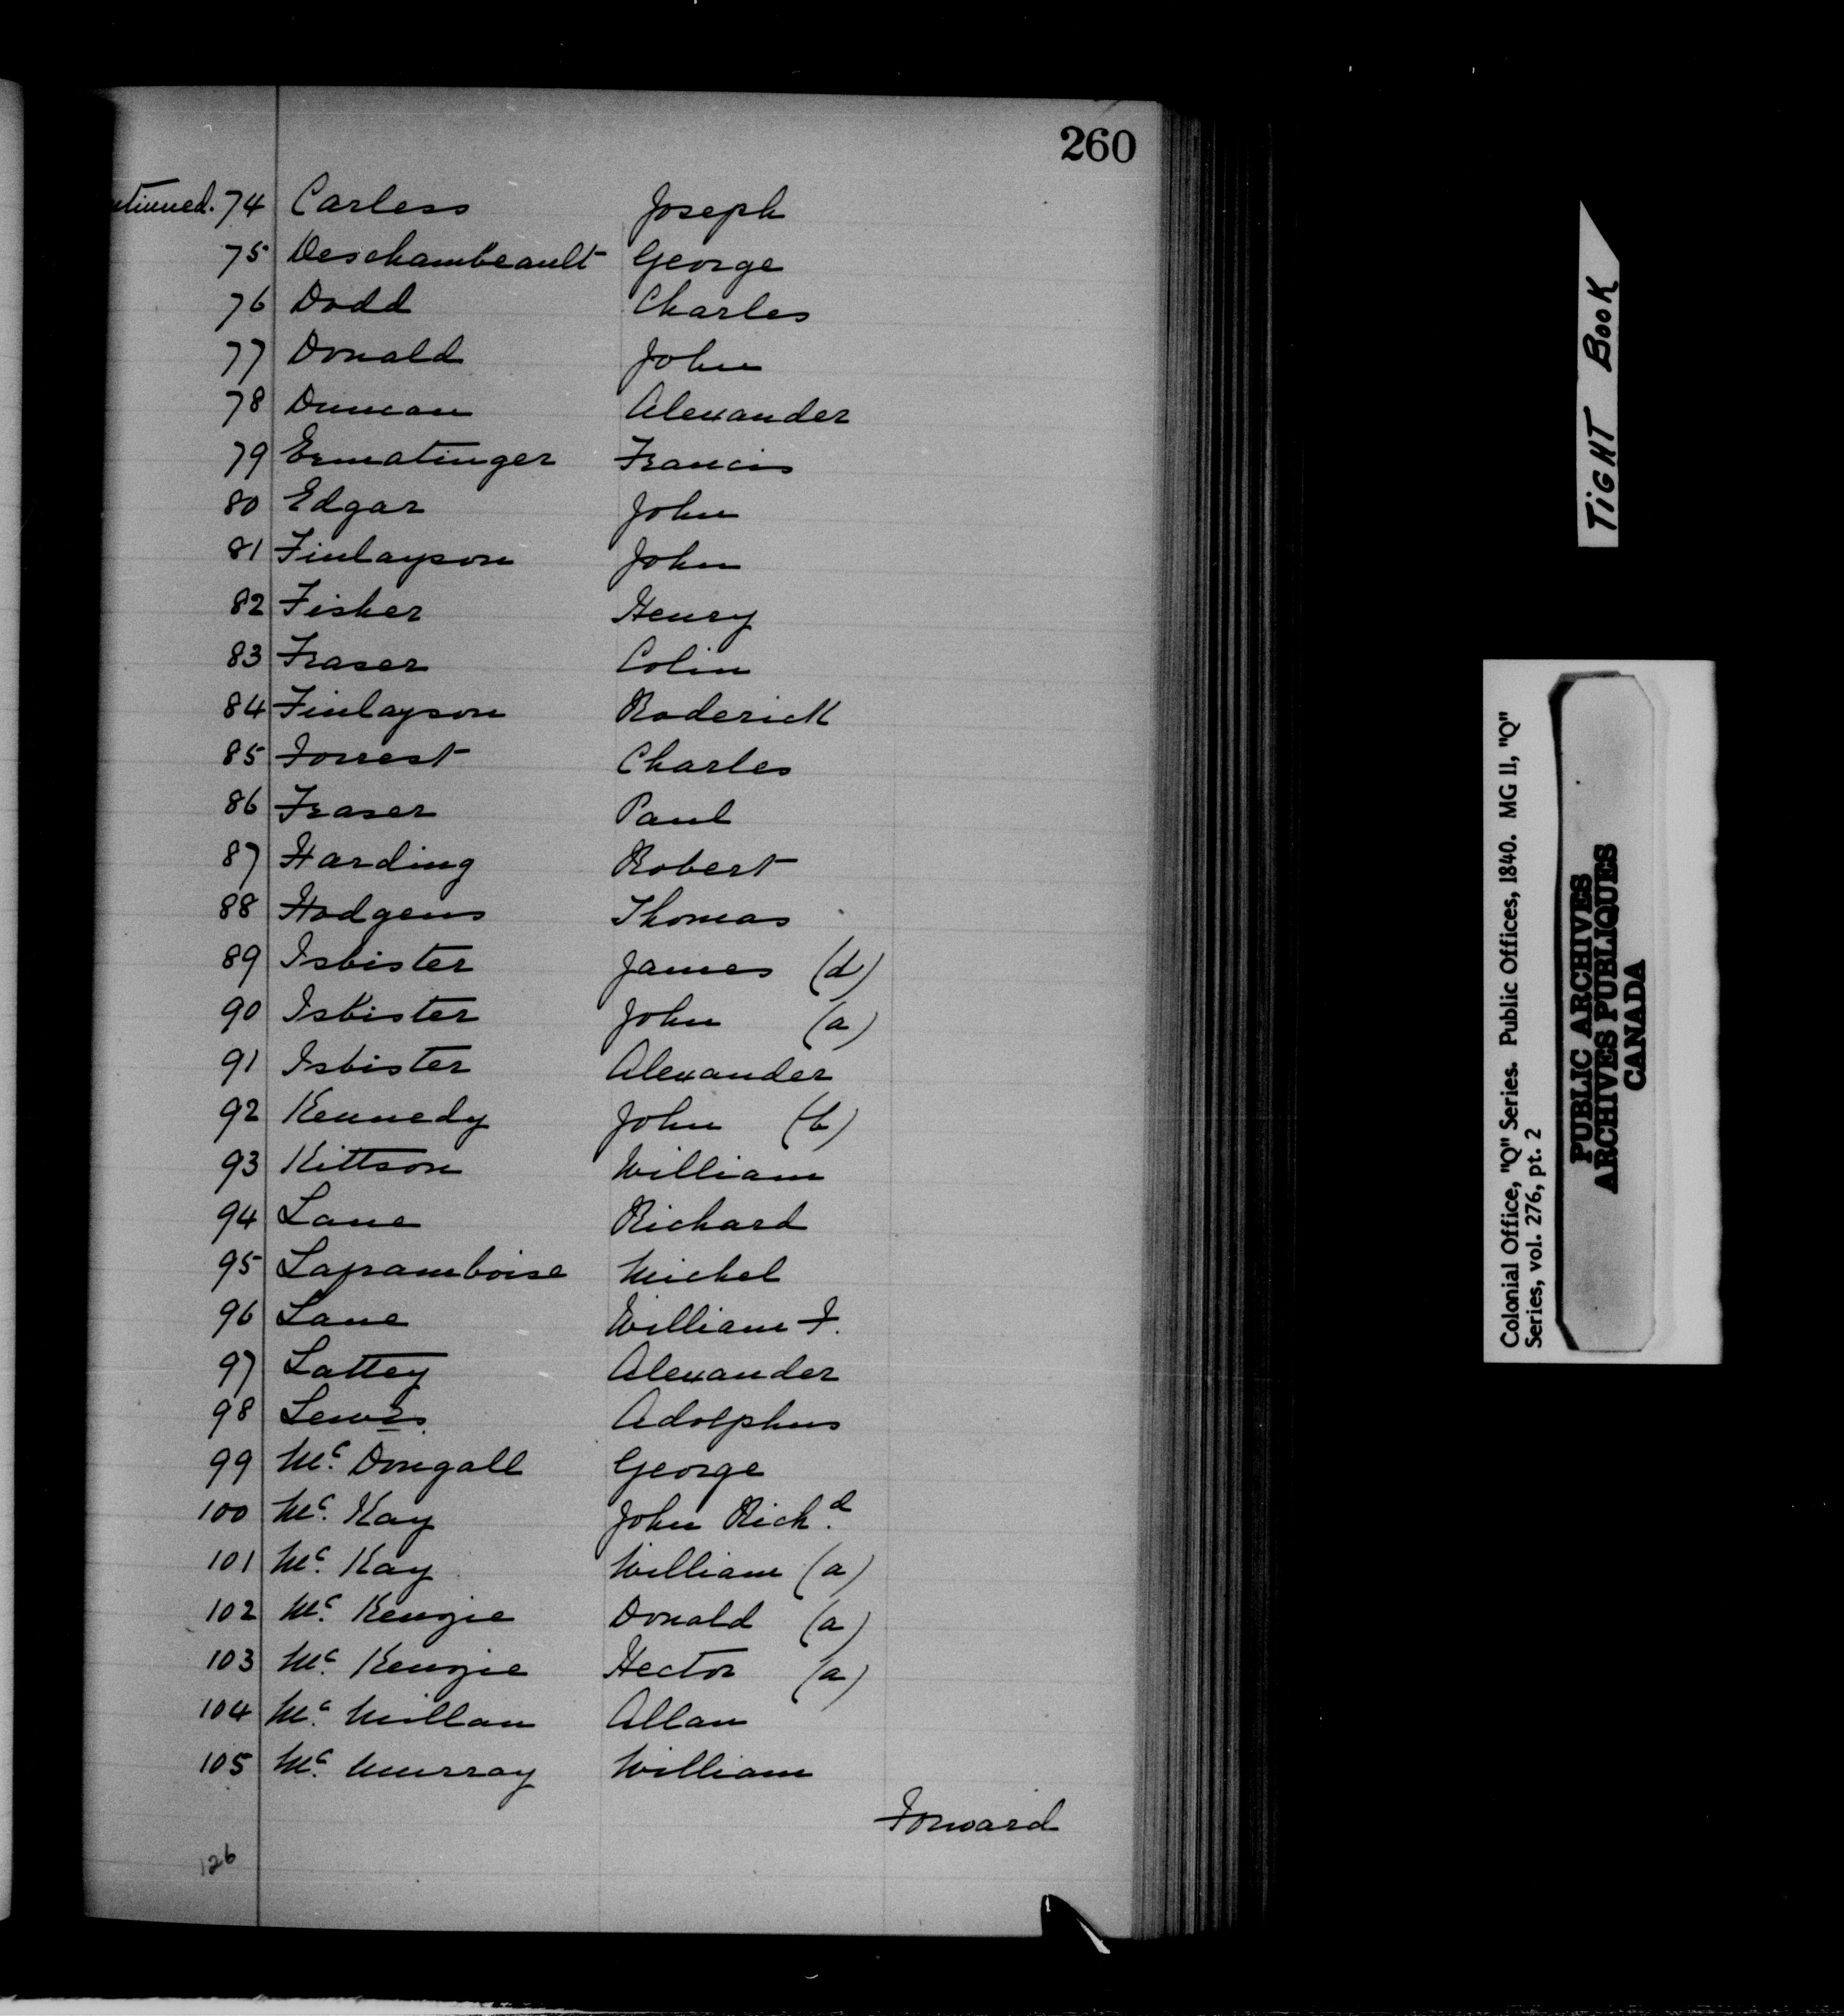 260
ntinued. 74 Carless Joseph
75 Deschambeault George
76 Dodd Charles
77 Donald John
78 Duncan Alexander
79 Ermatinger Francis
80 Edgar John
81 Finlayson John
82 Fisher Henry
83 Fraser Colin
84 Finlayson Roderick
85 Forrest Charles
86 Fraser Paul
87 Harding Robert
88 Hodgens Thomas
89 Isbister James (d)
90 Isbister John (a)
91 Isbister Alexander
92 Kennedy John (b)
93 Kittson William
94 Lane Richard
95 Laframboise Michel
96 Lane William F.
97 Lattey Alexander
98 Lewes Adolphus
99 Mc. Dougall George
100 Mc. Kay John Richd.
101 Mc. Kay William (a)
102 Mc. Kenzie Donald (a)
103 Mc. Kenzie Hector (a)
104 Mc. Millan Allan
105 Mc. Murray William
Forward
126
TIGHT BOOK
Colonial Office, "Q" Series. Public Offices, 1840. MG 11, "Q"
Series, vol. 276, pt. 2
PUBLIC ARCHIVES
ARCHIVES PUBLIQUES
CANADA